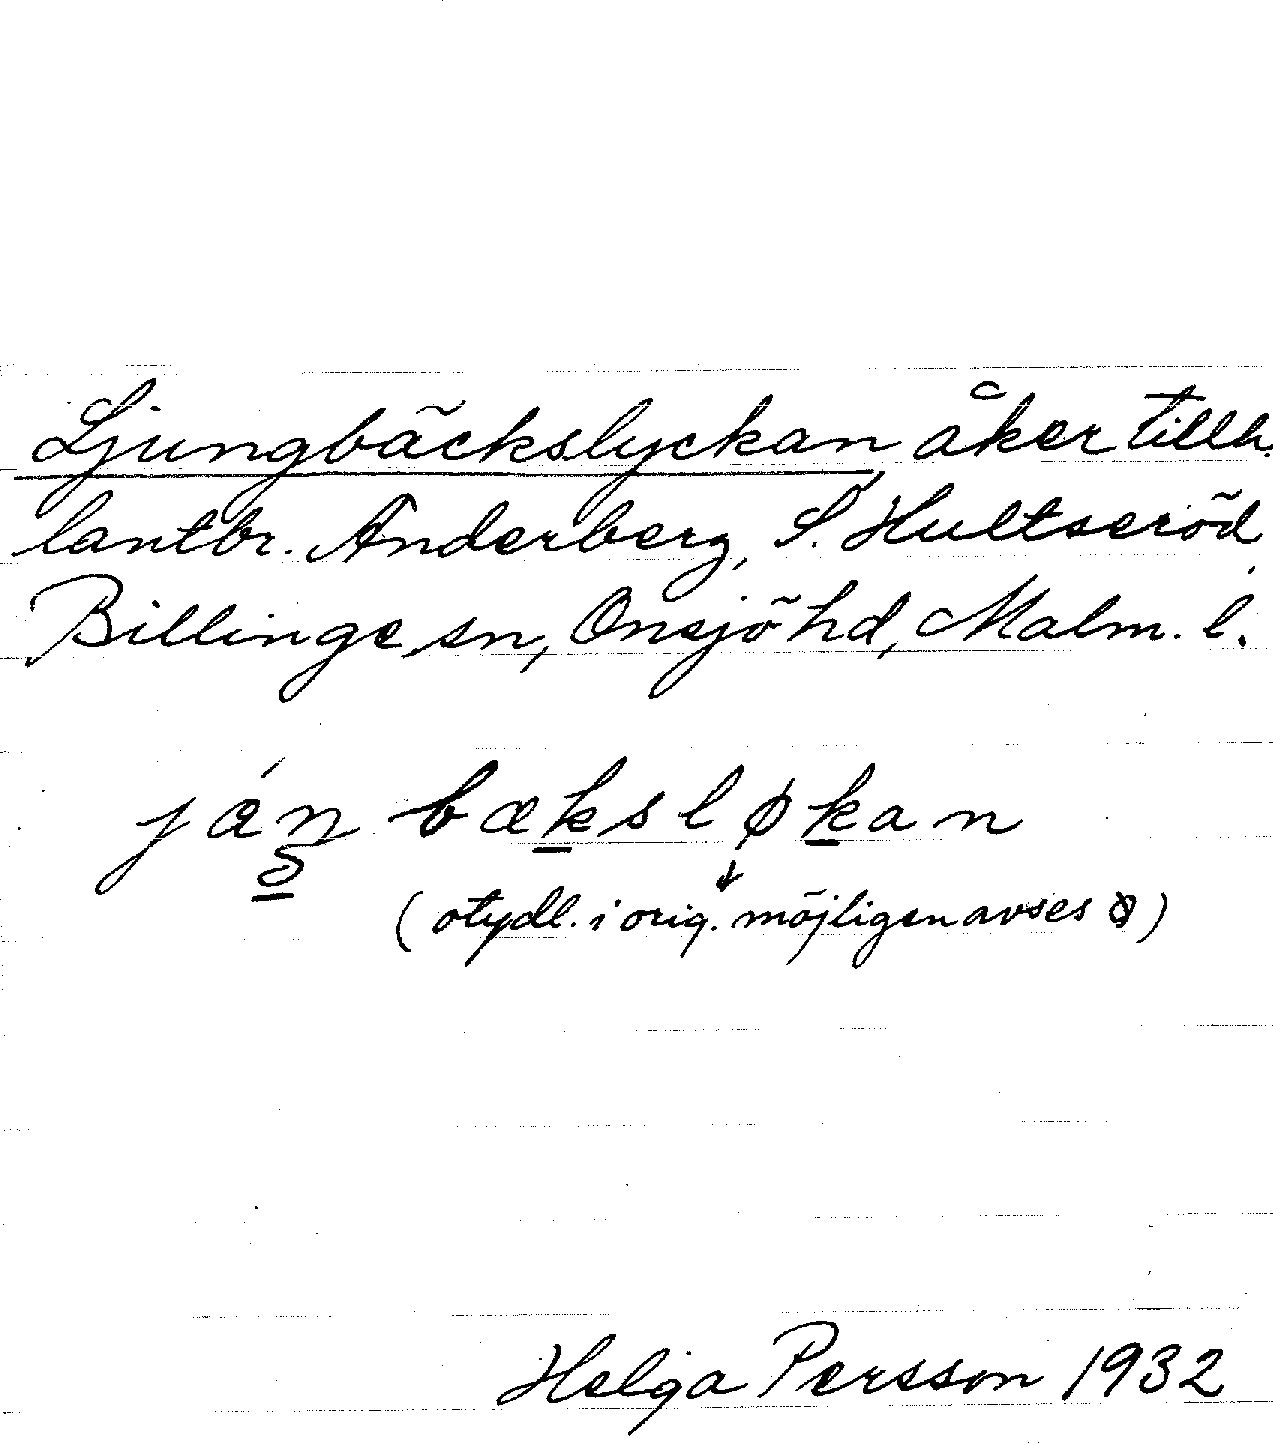 Ljungbäckslyckan, åker tillh.
lantbr. Anderberg, S. Hultseröd,
Billinge sn, Onsjö hd, Malm. l.
bæksløkan
(otydl. i orig. möjligen avses )
Helga Persson 1932